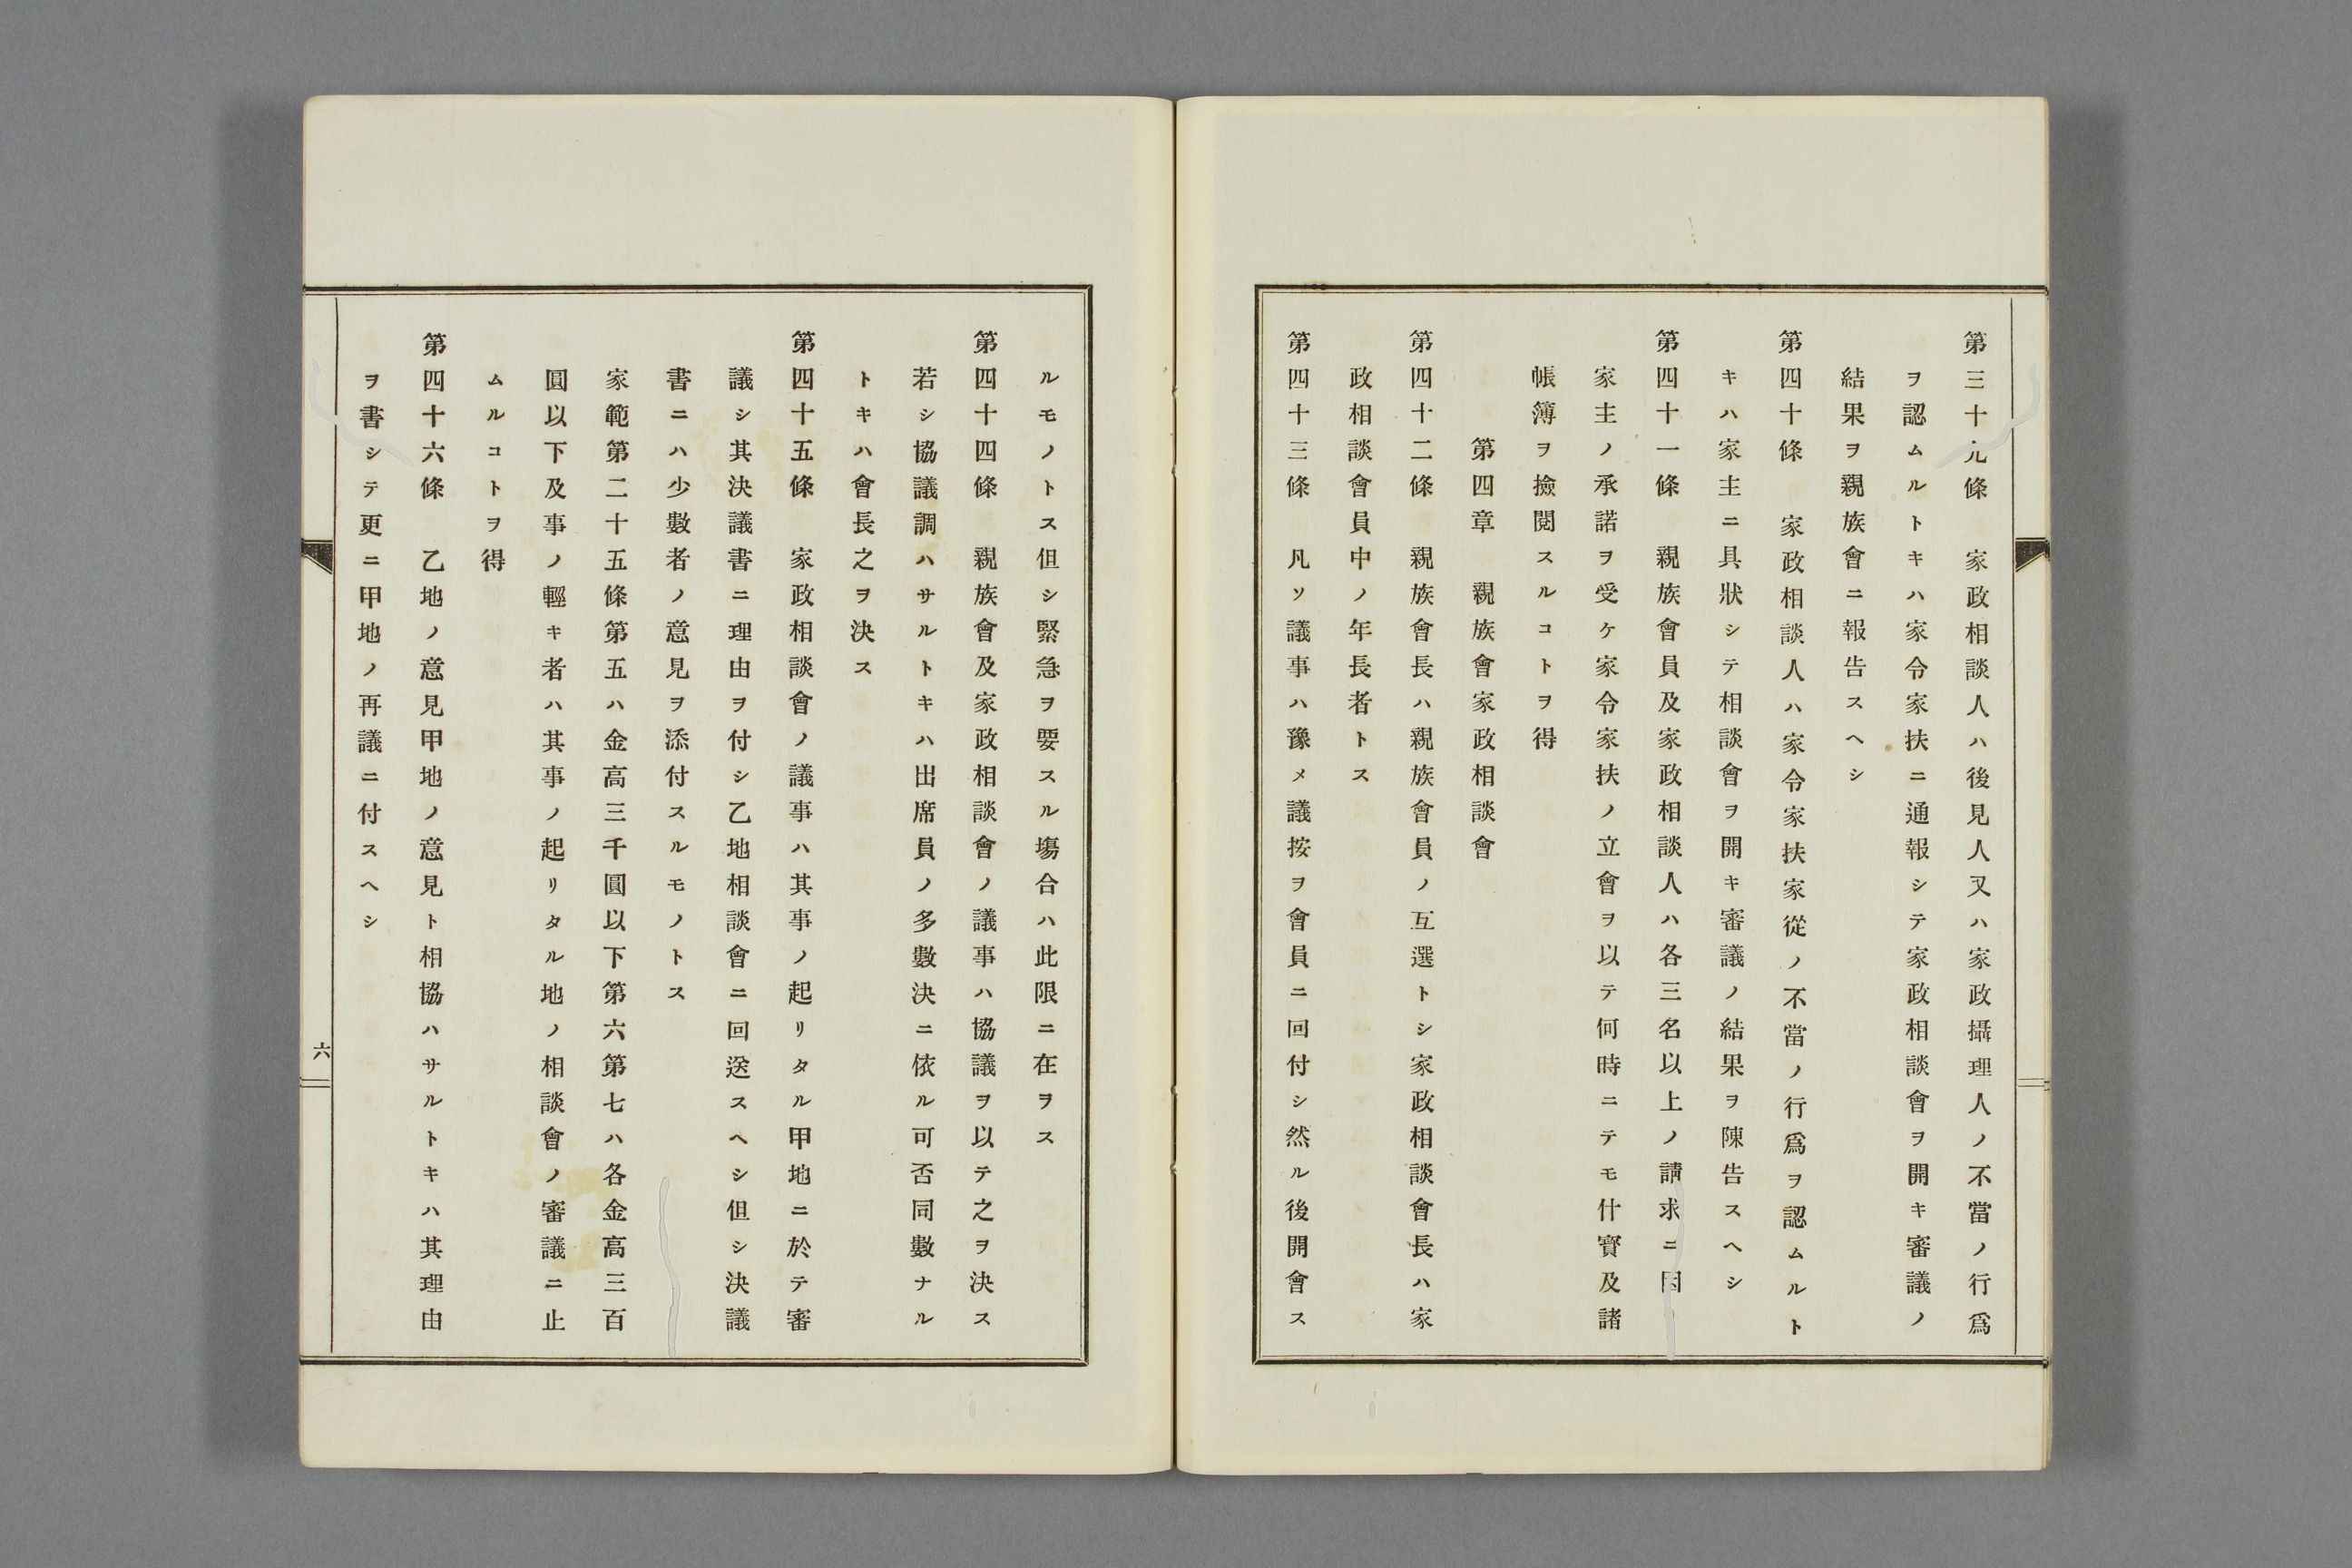 第三十九條　家政相談人ハ後見人又ハ家政攝理人ノ不當ノ行爲
ヲ認ムルトキハ家令家扶ニ通報シテ家政相談會ヲ開キ審議ノ
結果ヲ親族會ニ報告スヘシ
第四十條　家政相談人ハ家令家扶家從ノ不當ノ行爲ヲ認ムルト
キハ家主ニ具狀シテ相談會ヲ開キ審議ノ結果ヲ陳告スヘシ
第四十一條　親族會員及家政相談人ハ各三名以上ノ請求ニ因
家主ノ承諾ヲ受ケ家令家扶ノ立會ヲ以テ何時ニテモ什寳及諸
帳簿ヲ撿閱スルコトヲ得
第四章　親族會家政相談會
第四十二條　親族會長ハ親族會員ノ互選トシ家政相談會長ハ家
政相談會員中ノ年長者トス
第四十三條　凡ソ議事ハ豫メ議按ヲ會員ニ回付シ然ル後開會ス
ルモノトス但シ緊急ヲ要スル塲合ハ此限ニ在ヲス
第四十四條　親族會及家政相談會ノ議事ハ協議ヲ以テ之ヲ決ス
若シ協議調ハサルトキハ出席員ノ多數決ニ依ル可否同數ナル
トキハ會長之ヲ決ス
第四十五條　家政相談會ノ議事ハ其事ノ起リタル甲地ニ於テ審
議シ其決議書ニ理由ヲ付シ乙地相談會ニ回送スヘシ但シ決議
書ニハ少數者ノ意見ヲ添付スルモノトス
家範第二十五條第五ハ金高三千圓以下第六第七ハ各金高三百
圓以下及事ノ輕キ者ハ其事ノ起リタル地ノ相談會ノ審議ニ止
ムルコトヲ得
第四十六條　乙地ノ意見甲地ノ意見ト相協ハサルトキハ其理由
ヲ書シテ更ニ甲地ノ再議ニ付スヘシ
六